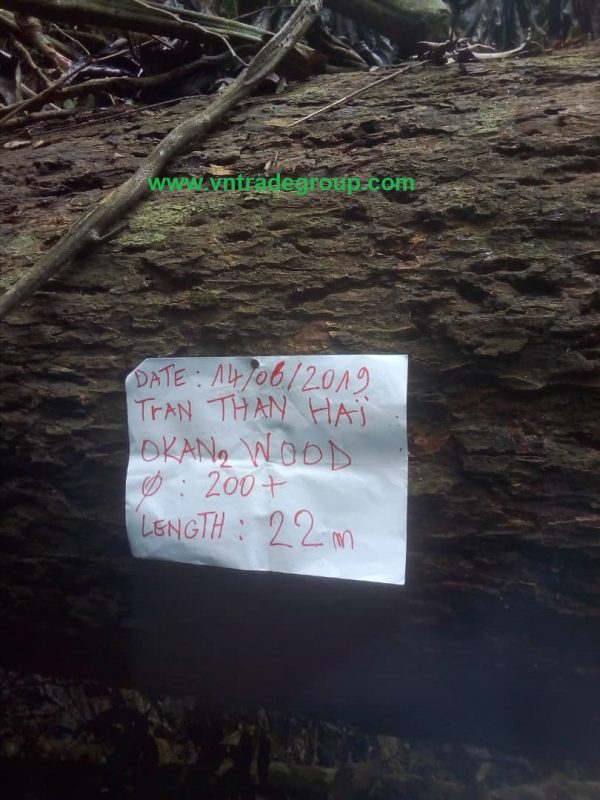 www.vntradegroup.com
DATE : 14/06/2019
TrAN THAN HAï
OKAN₂ WOOD
Ø : 200+
LENGTH : 22m